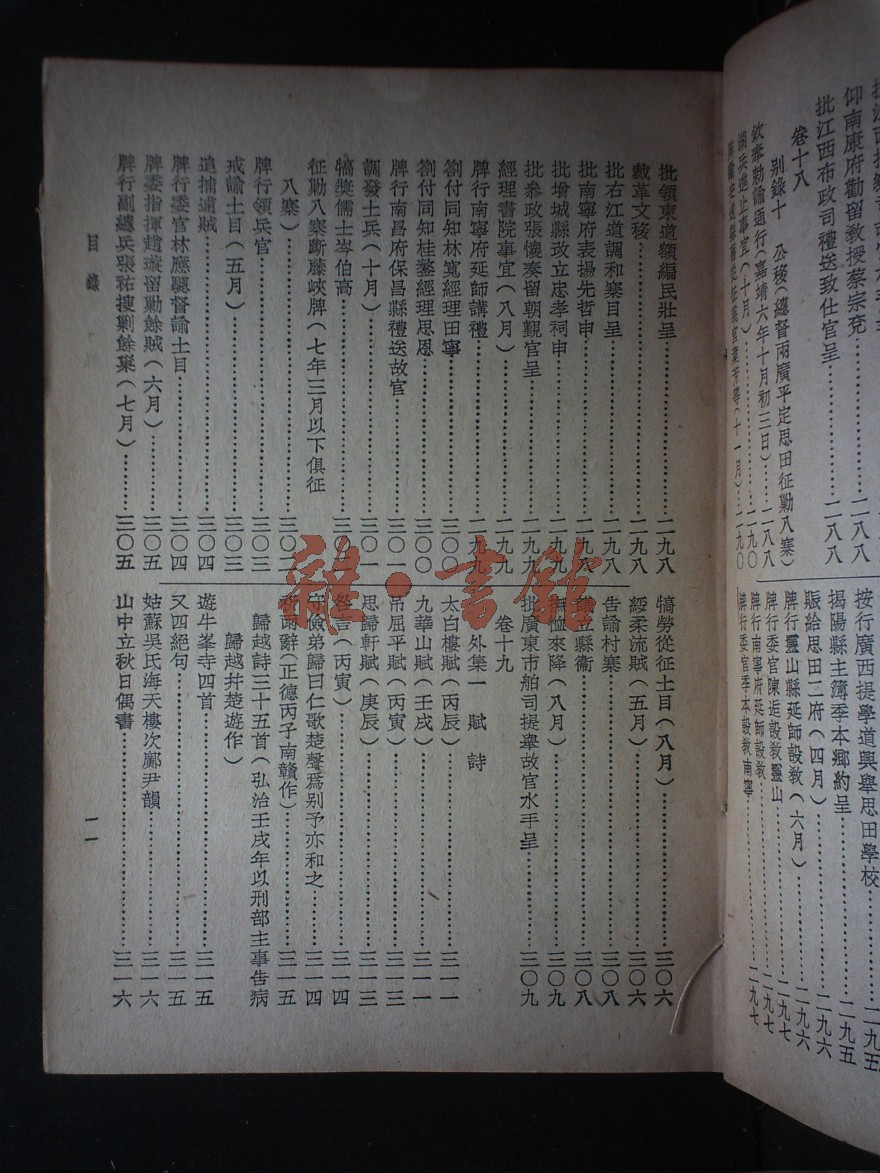 仰南康府勸留教授蔡宗兗……二八八
批江西布政司禮送致仕官呈……二八八
卷十八
別錄十　公移(總督兩廣平定思田征勦八寨)
欽奉勅諭通行(嘉靖六年十月初三日)……二八八
湖兵進止事宜(十月)……二九〇
按行廣西提學道興舉思田學校……二九五
揭陽縣主簿季本鄉約呈……二九五
賑給思田二府(四月)……二九六
牌行靈山縣延師設教(六月)……二九六
牌行委官陳逅設教靈山……二九七
牌行南寧府延師設教……二九七
牌行委官季本設教南寧……二九七
批嶺東道額編民壯呈……二九八
裁革文移……二九八
批右江道調和寨目呈……二九八
批南寧府表揚先哲申……二九八
批增城縣改立忠孝祠申……二九八
批參政張懷奏留朝覲官呈……二九九
經理書院事宜(八月)……二九九
牌行南寧府延師講禮……二九九
劄付同知林寬經理田寧……三〇〇
劄付同知桂鏊經理思恩……三〇〇
牌行南昌府保昌縣禮送故官……三〇一
調發土兵(十月)……三〇一
犒奬儒士岑伯高……三〇二
征勦八寨斷藤峽牌(七年三月以下俱征
八寨)……三〇二
牌行領兵官……三〇三
戒諭土目(五月)……三〇三
追捕逋賊……三〇四
牌行委官林應驄督諭土目……三〇四
牌委指揮趙璇留勦餘賊(六月)……三〇五
牌行副總兵張祐搜剿餘巢(七月)……三〇五
犒勞從征土目(八月)……三〇六
綏柔流賊(五月)……三〇六
告諭村寨……三〇八
立縣衛……三〇八
撫恤來降(八月)……三〇九
批廣東市舶司提舉故官水手呈……三〇九
卷十九
外集一　賦　詩
太白樓賦(丙辰)……三一一
九華山賦(壬戌)……三一一
吊屈平賦(丙寅)……三一三
思歸軒賦(庚辰)……三一三
咎言(丙寅)……三一四
守儉弟歸曰仁歌楚聲爲別予亦和之……三一四
祈雨辭(正德丙子南贛作)……三一五
歸越詩三十五首(弘治壬戌年以刑部主事告病
歸越并楚遊作)
遊牛峯寺四首……三一五
又四絕句……三一五
姑蘇吳氏海天樓次鄺尹韻……三一六
山中立秋日偶書……三一六
目錄
一一
雜·書館